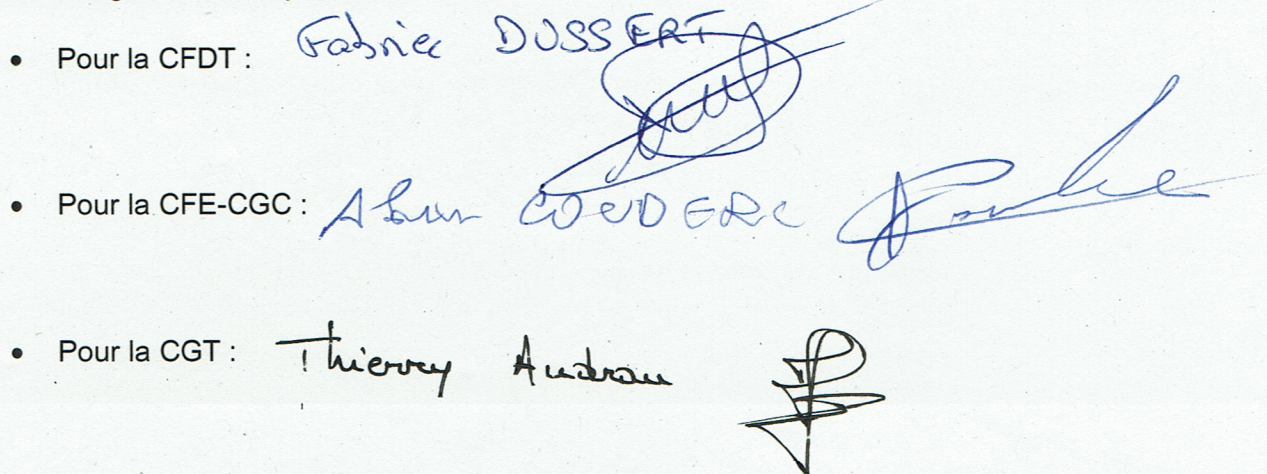 • Pour la CFDT : Fabrice DUSSERT
• Pour la CFE-CGC : Alain COUDERC
• Pour la CGT : Thierry Audrau